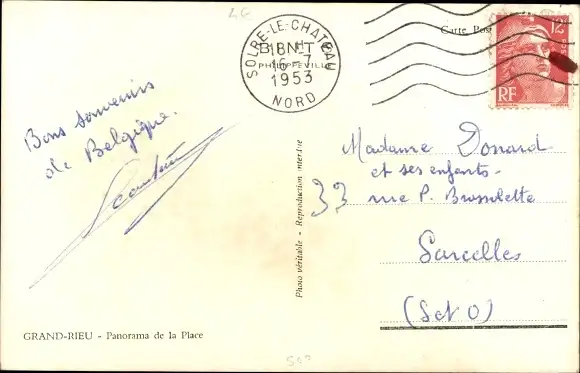 SOLRE-LE-CHATEAU
18 H
16-7
1953
NORD
Carte Post
12F
RF
Bons souvenirs
de Belgique.
Madame Donard
et ses enfants.
33 rue P. Brossolette
Sarcelles
(S et O)
Photo véritable - Reproduction interdite
GRAND-RIEU - Panorama de la Place